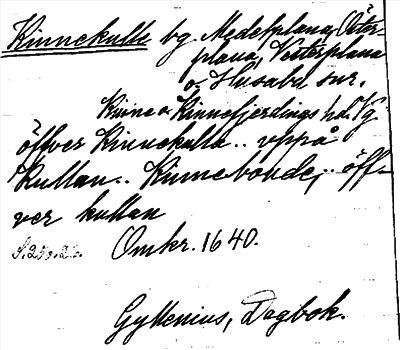 Kinnekulle bg Medelplana, Öster-
plana, Vesterplana
o. Husaby snr.
Kinne o. Kinnefjerdings hd. Vg
öffver Kinnekulla .. vppå
Kullan .. Kinnebonde, .. öff-
ver kullan
Omkr. 1640.
Gyllenius, Dagbok.